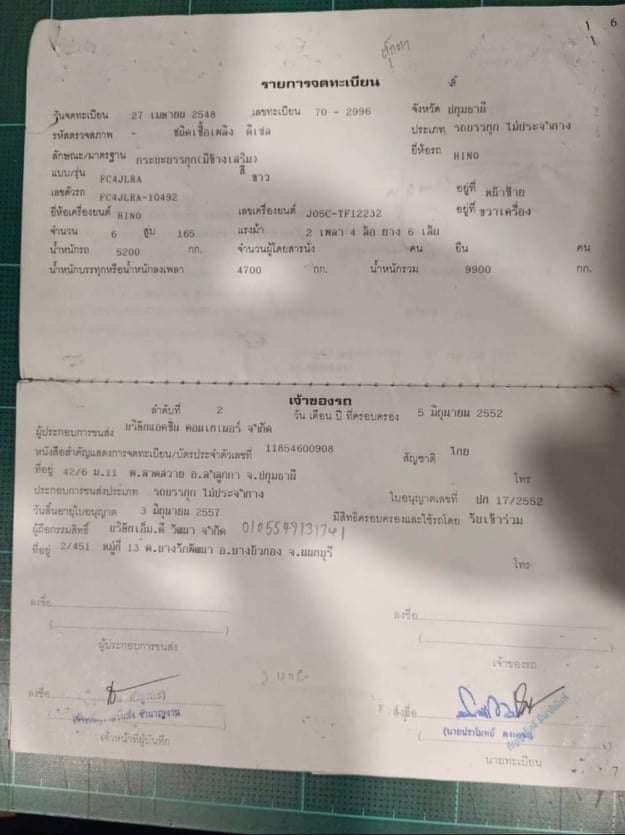 1 6
1
รายการจดทะเบียน
วันจดทะเบียน 27 เมษายน 2548 เลขทะเบียน 70 - 2996 จังหวัด ปทุมธานี
รหัสตรวจสภาพ - ชนิดเชื้อเพลิง ดีเซล ประเภท รถบรรทุก ไม่ประจำทาง
ลักษณะ/มาตรฐาน กระบะบรรทุก(มีข้างเสริม) ยี่ห้อรถ HINO
แบบ/รุ่น FC4JLRA สี ขาว
เลขตัวรถ FC4JLRA-10492 อยู่ที่ หน้าซ้าย
ยี่ห้อเครื่องยนต์ HINO เลขเครื่องยนต์ J05C-TF12232 อยู่ที่ ขวาเครื่อง
จำนวน 6 สูบ 165 แรงม้า 2 เพลา 4 ล้อ ยาง 6 เส้น
น้ำหนักรถ 5200 กก. จำนวนผู้โดยสารนั่ง คน ยืน คน
น้ำหนักบรรทุกหรือน้ำหนักลงเพลา 4700 กก. น้ำหนักรวม 9900 กก.
เจ้าของรถ
ลำดับที่ 2 วัน เดือน ปี ที่ครอบครอง 5 มิถุนายน 2552
ผู้ประกอบการขนส่ง คอนเทนเนอร์ จำกัด
หนังสือสำคัญแสดงการจดทะเบียน/บัตรประจำตัวเลขที่ 11854600908 สัญชาติ ไทย
ที่อยู่ 42/6 ม.11 ต.ลาดสวาย อ.ลำลูกกา จ.ปทุมธานี โทร
ประกอบการขนส่งประเภท รถบรรทุก ไม่ประจำทาง ใบอนุญาตเลขที่ ปท 17/2552
วันสิ้นอายุใบอนุญาต 3 มิถุนายน 2557 มีสิทธิครอบครองและใช้รถโดย
ผู้ถือกรรมสิทธิ์ วัฒนา จำกัด 0105549131741
ที่อยู่ 2/451 หมู่ที่ 13 ต.บางรักพัฒนา อ.บางบัวทอง จ.นนทบุรี
โทร
ลงชื่อ ลงชื่อ
( ) ( )
ผู้ประกอบการขนส่ง เจ้าของรถ
ลงชื่อ ลงชื่อ
ชำนาญงาน (นายปราโมทย์
เจ้าหน้าที่ผู้บันทึก นายทะเบียน
7